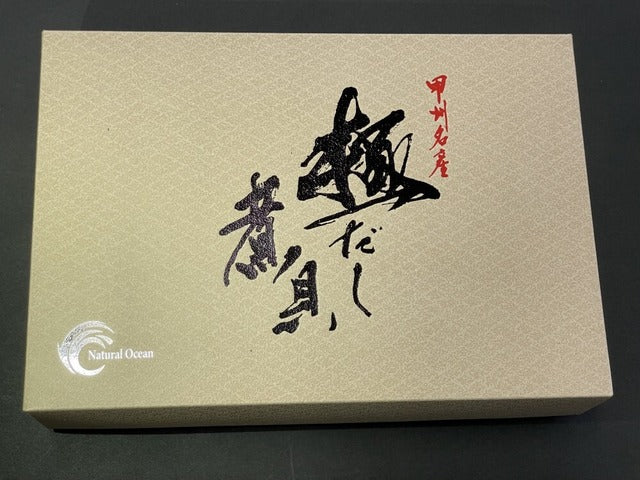 甲州名産
極だし
煮貝
Natural Ocean